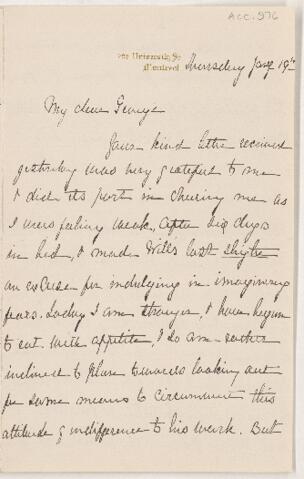 ACC. 976
University St
Montreal
Thursday Jany 19th
My dear George
Your kind letter received
yesterday was very grateful to me
& did its part in cheering me as
I was feeling weak, after six days
in bed, & made Will's last
an excuse for indulging in imaginary
fears. Today I am stronger, & have begun
to eat with appetite, & so am rather
inclined to towards looking out
for some means to circumvent this
attitude of indifference to his work. But